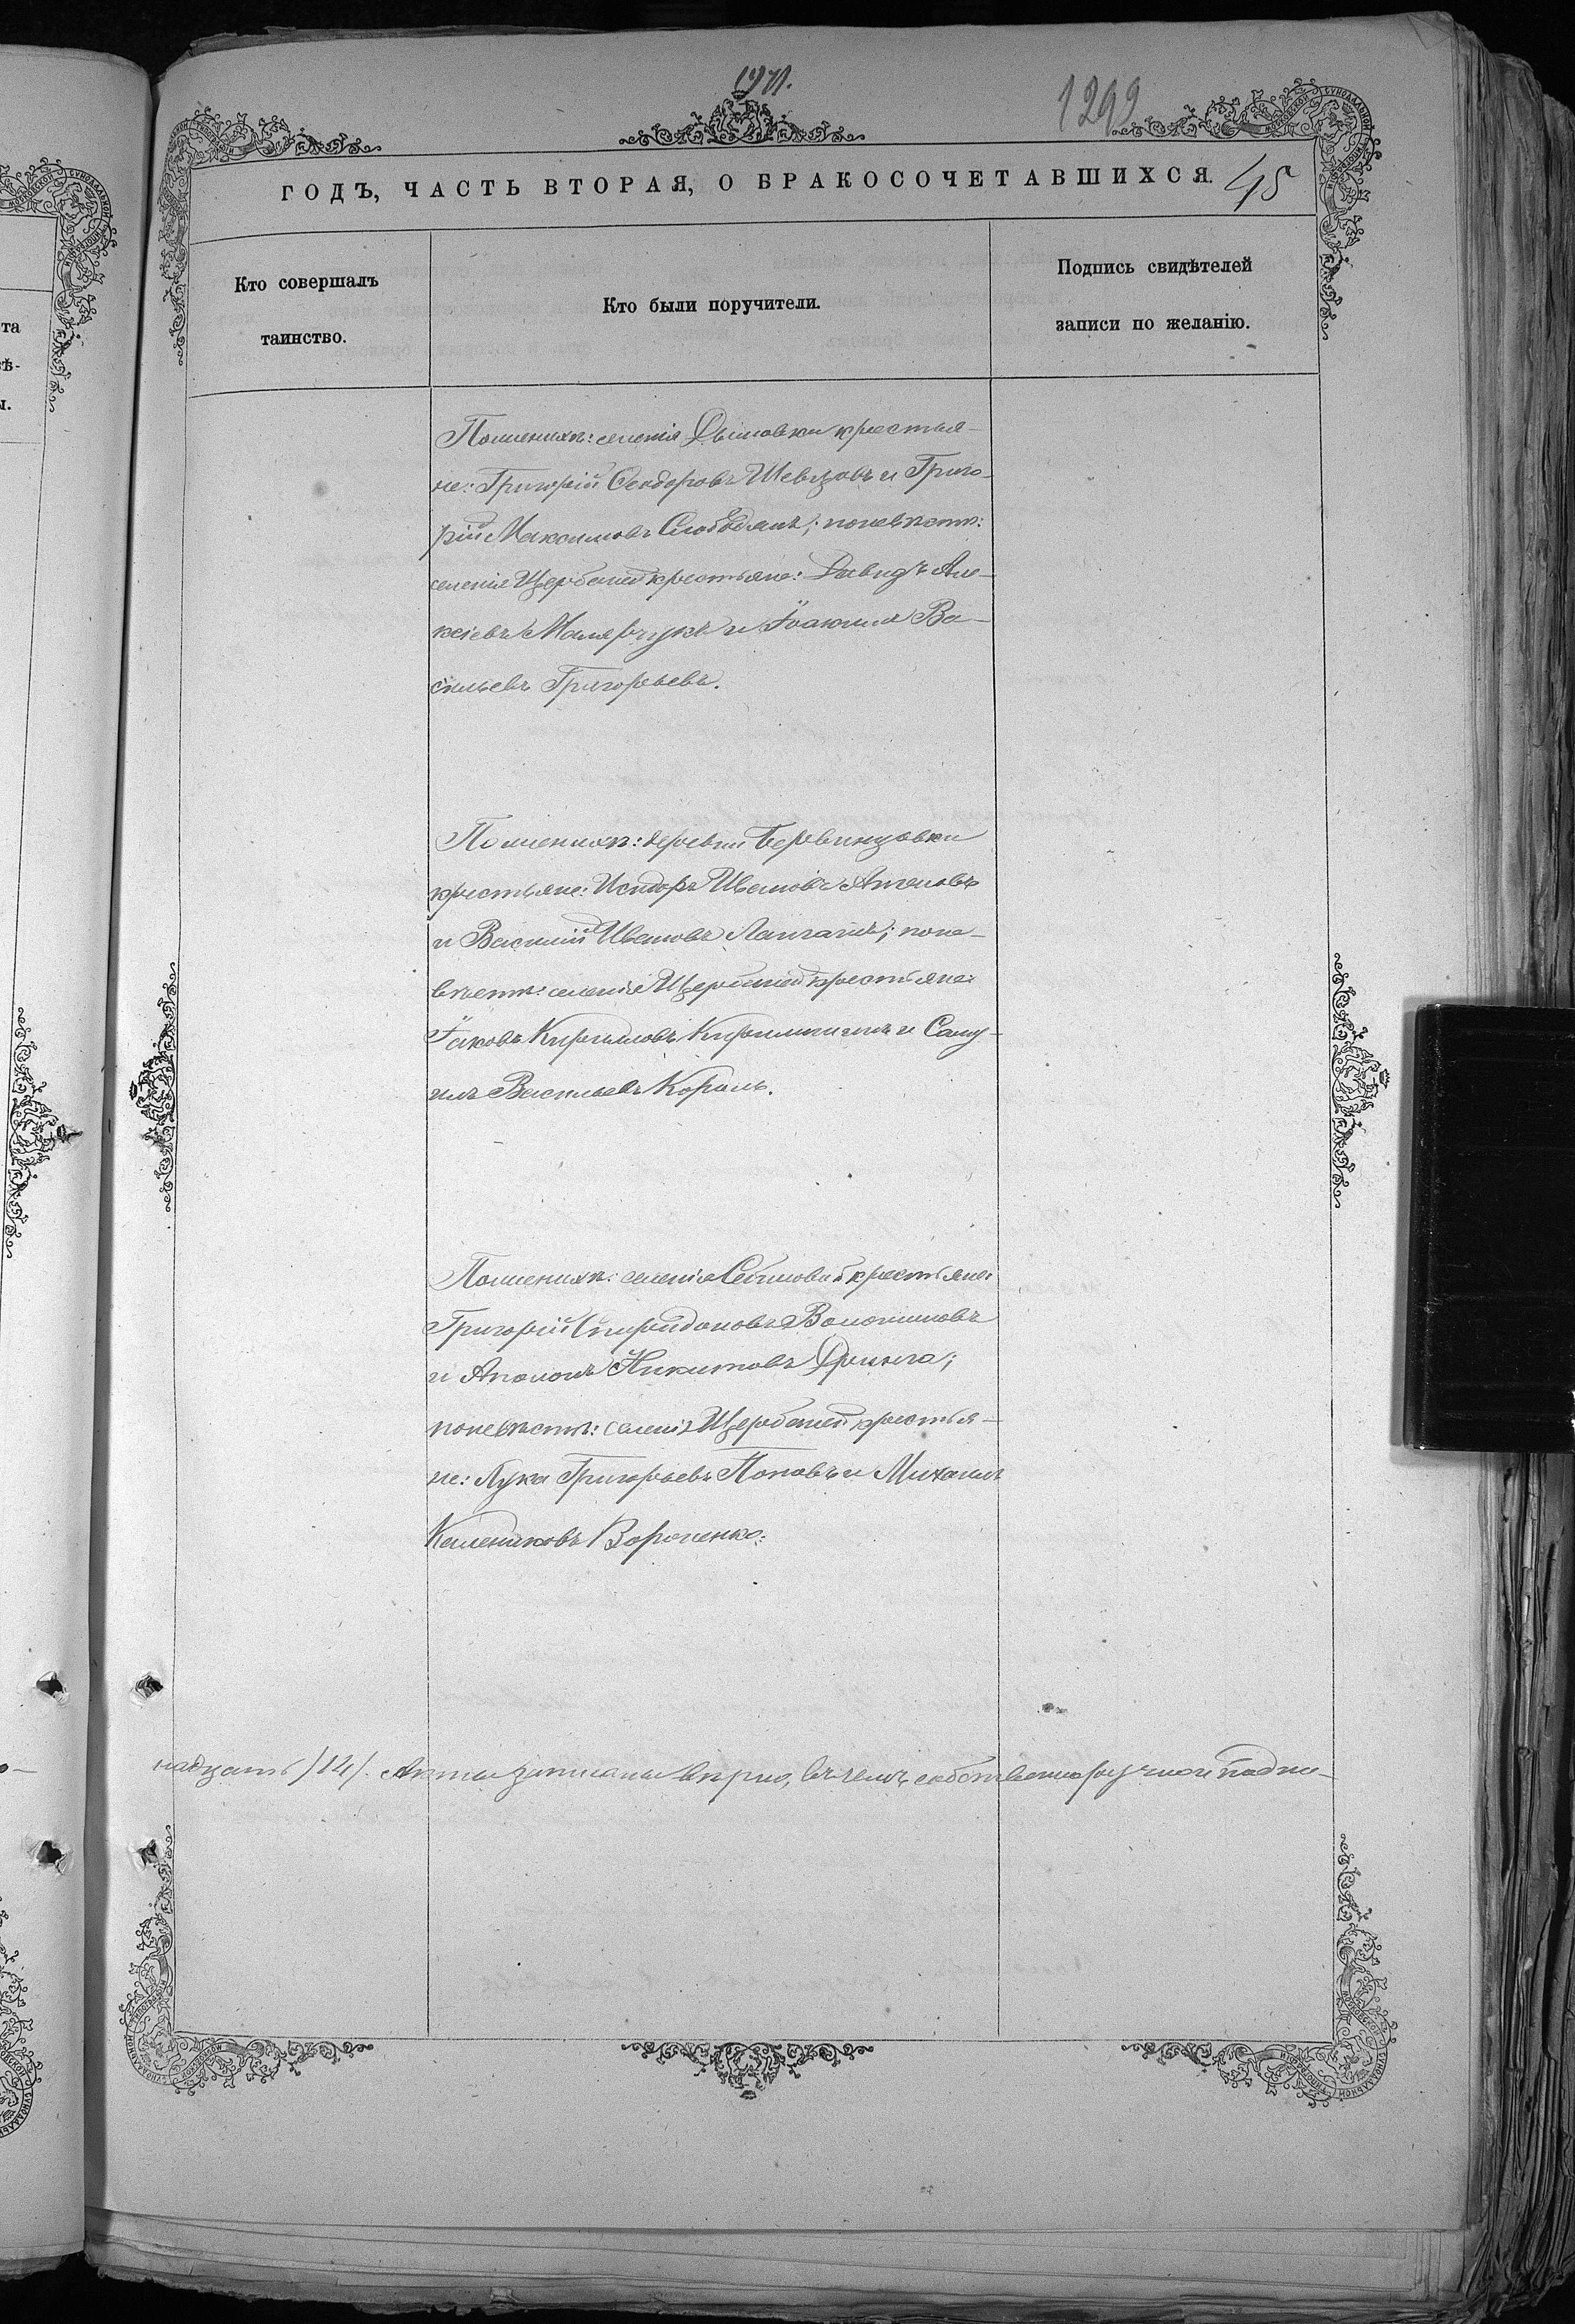 1299
ГОДЪ, ЧАСТЬ ВТОРАЯ, О БРАКОСОЧЕТАВШИХСЯ.
45
Кто совершалъ
таинство.
Кто были поручители.
Подпись свидѣтелей
записи по желанію.
По женихѣ: селенія Дымовки крестья-
не: Григорій Сидоровъ Шевцовъ и Григо-
рій Максимовъ; по невѣстѣ:
селенія Щербаней крестьяне: Давидъ Але-
ксіевъ Малярчукъ и Іоакимъ Ва-
сильевъ Григорьевъ.
По женихѣ: деревни
крестьяне: Исидоръ Ивановъ
и Василий Ивановъ; по не-
вѣстѣ: селенія Щербаней крестьяне:
Іаковъ Кирилловъ и Саму-
илъ Васильевъ Король.
По женихѣ: селенія крестьяне:
Григорій Спиридоновъ Волошиновъ
и Никитовъ;
по невѣстѣ: селенія Щербаней крестья-
не: Лука Григорьевъ Поповъ и Михаилъ
Вороненко.
надцать /14/. Акты записаны вѣрно, въ чемъ собственноручной подпи-